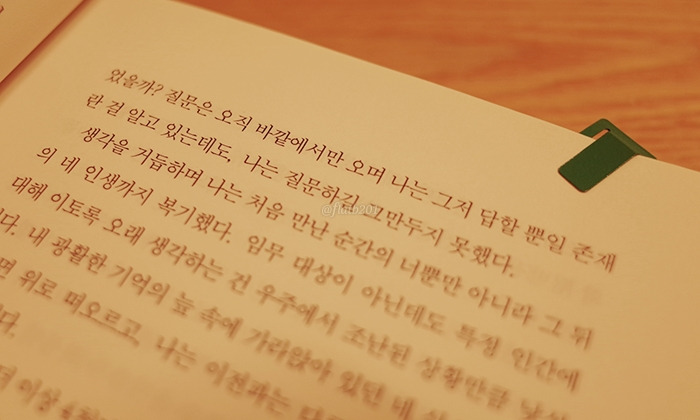 었을까? 질문은 오직 바깥에서만 오며 나는 그저 답할 뿐일 존재
란 걸 알고 있는데도, 나는 질문하길 그만두지 못했다.
생각을 거듭하며 나는 처음 만난 순간의 너뿐만 아니라 그 뒤
의 네 인생까지 복기했다. 임무 대상이 아닌데도 특정 인간에
대해 이토록 오래 생각하는 건 우주에서 조난된 상황만큼
다. 내 광활한 기억의 늪 속에 가라앉아 있던 네
면 위로 떠오르고, 나는 이전과는
다.
더 이상